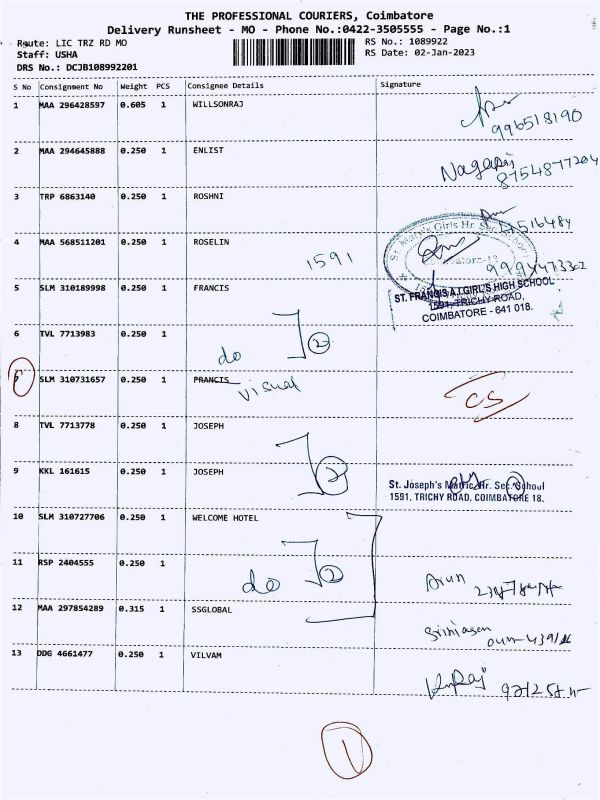 THE PROFESSIONAL COURIERS, Coimbatore
Delivery Runsheet - MO - Phone No.:0422-3505555 - Page No.:1
Route: LIC TRZ RD MO
RS No.: 1089922
Staff: USHA
RS Date: 02-Jan-2023
DRS No.: DCJB108992201
S No Consignment No Weight PCS Consignee Details Signature
1 MAA 296428597 0.605 1 WILLSONRAJ
996518190
2 MAA 294645888 0.250 1 ENLIST
Nagaraj
8754877204
3 TRP 6863140 0.250 1 ROSHNI
4 MAA 568511201 0.250 1 ROSELIN
1591
5 SLM 310189998 0.250 1 FRANCIS
ST. FRANCIS A.I.GIRL'S HIGH SCHOOL
1591, TRICHY ROAD,
COIMBATORE - 641 018.
6 TVL 7713983 0.250 1
do 2
SLM 310731657 0.250 1 FRANCIS
visual
CS
8 TVL 7713778 0.250 1 JOSEPH
2
9 KKL 161615 0.250 1 JOSEPH
St. Joseph's Matric.Hr. Sec. School
1591, TRICHY ROAD, COIMBATORE 18.
10 SLM 310727706 0.250 1 WELCOME HOTEL
11 RSP 2404555 0.250 1
do 2
Arun
12 MAA 297854289 0.315 1 SSGLOBAL
13 DDG 4661477 0.250 1 VILVAM
1